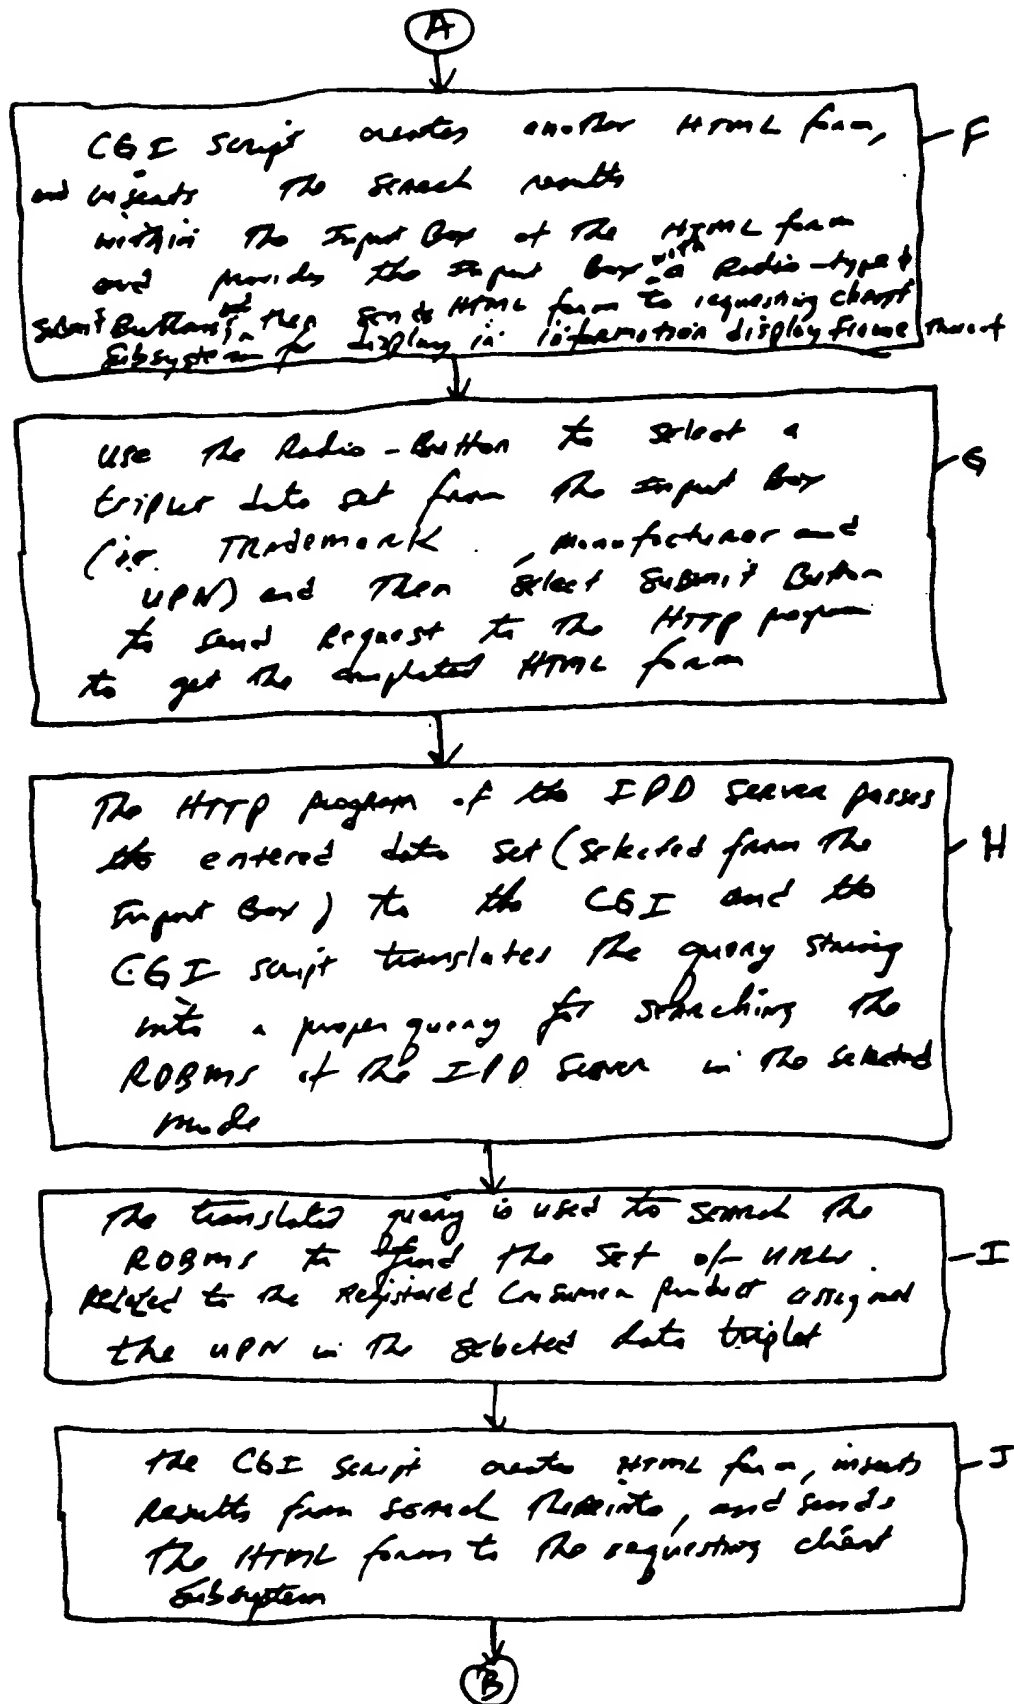 A
CGI script creates another HTML form, F
and inserts the search results
within the Input Box of the HTML form
and provides the Input Box with a Radio-type &
Submit Buttons, and then sends HTML form to requesting client
subsystem for display in information display frame thereof
use the Radio-Button to select a
triplet data set from the Input Box G
(i.e. Trademark, manufacturer and
UPN) and then select Submit Button
to send Request to the HTTP program
to get the completed HTML form
The HTTP program of the IPD server passes
the entered data set (selected from the H
Input Box) to the CGI and the
CGI script translates the query string
into a proper query for searching the
RDBMS of the IPD Server in the selected
mode
The translated query is used to search the
RDBMS to find the set of URLs I
Related to the Registered Consumer product assigned
the UPN in the selected data triplet
the CGI script creates HTML form, inserts J
Results from search thereinto, and sends
the HTML form to the requesting client
subsystem
B